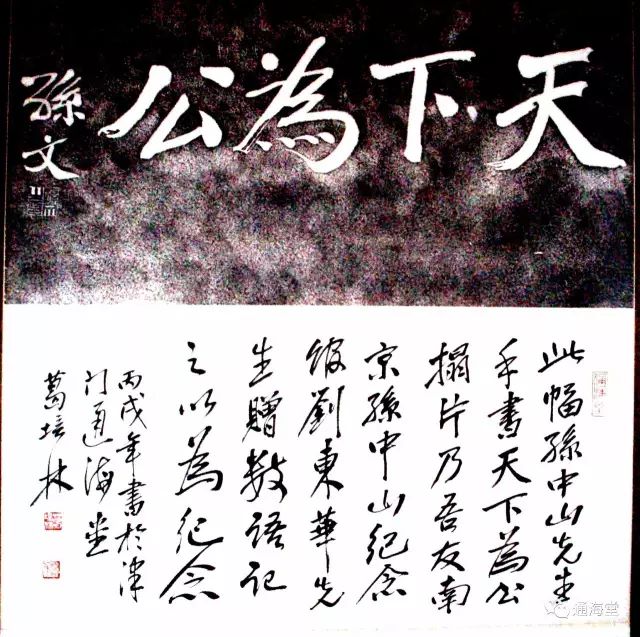 天下為公
孫文
此幅孫中山先生
手書天下為公
搨片乃吾友南
京孫中山紀念
館劉東華先
生贈數語記
之以為紀念
丙戌年書於津
門通海堂
葛培林
通海堂